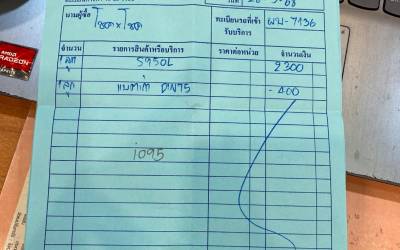 AMD
RADEON
นามผู้ซื้อ โชค x โชค
ทะเบียนรถที่เข้ารับบริการ ผบ-7136
จำนวน รายการสินค้าหรือบริการ ราคาต่อหน่วย จำนวนเงิน
1 ลูก S950L 2300
1 ลูก แบตเก่า DIN75 -400
i095